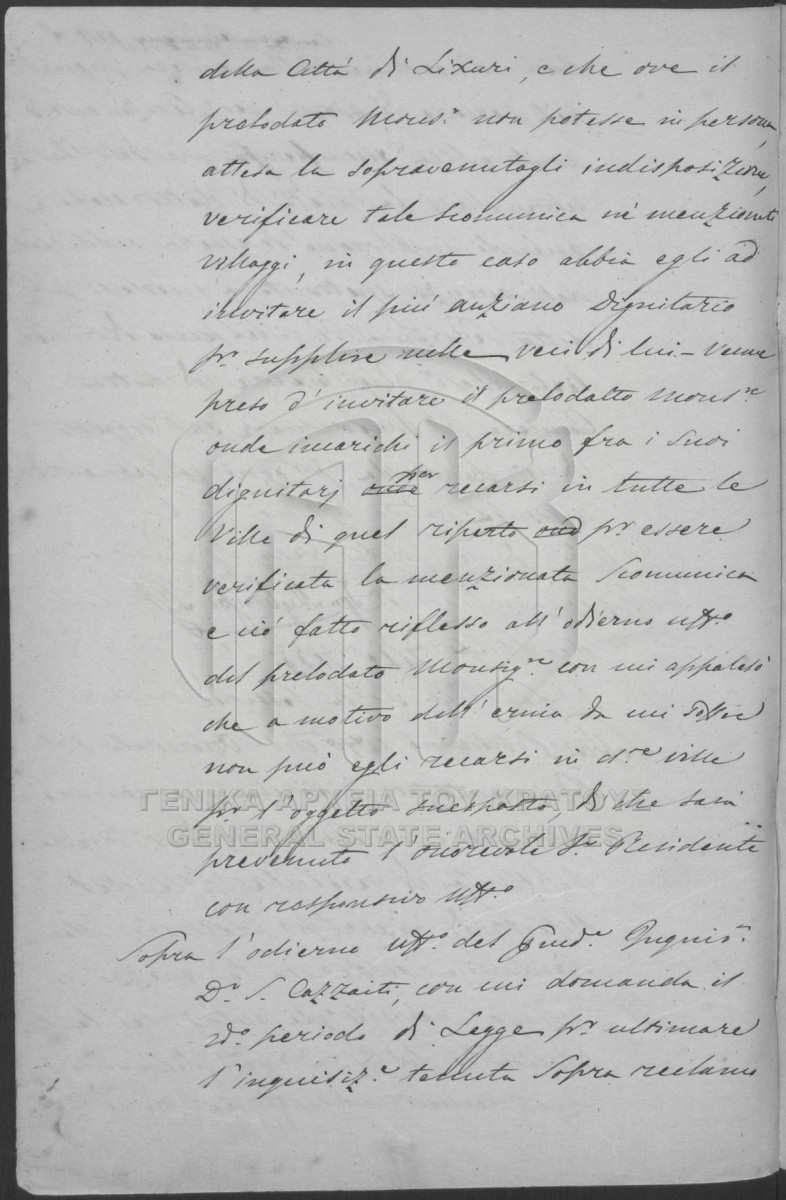 della Città di Lixuri, e che ove il
prelodato Monsr. non potesse in persona
attesa la sopravenutagli indisposizione,
verificare tale scomunica nè menzionati
villaggi, in questo caso abbia egli ad
invitare il più anziano Dignitario
pr. supplire nelle veci di lui – Venne
preso d'invitare il prelodatto Monsre.
onde incarichi il primo fra i suoi
dignitarj onde per recarsi in tutte le
Ville di quel riparto ond pr. essere
verificata la menzionata Scomunica
e ciò fatto riflesso all'odierno uffo.
del prelodato Monsigre. con cui appalesò
che a motivo dell'ernia da cui soffre
non può egli recarsi in de. ville
pr. l'oggetto suesposto, di che sarà
ΓΕΝΙΚΑ ΑΡΧΕΙΑ ΤΟΥ ΚΡΑΤΟΥΣ
GENERAL STATE ARCHIVES
prevenuto l'onorevole Sr. Residente
con responsivo uffo.
Sopra l'odierno uffo. del Giude. Inquisr.
Dr. S. Cazzaiti, con cui domanda il
2do. periodo di Legge pr. ultimare
l'inquisize. tenuta sopra reclamo